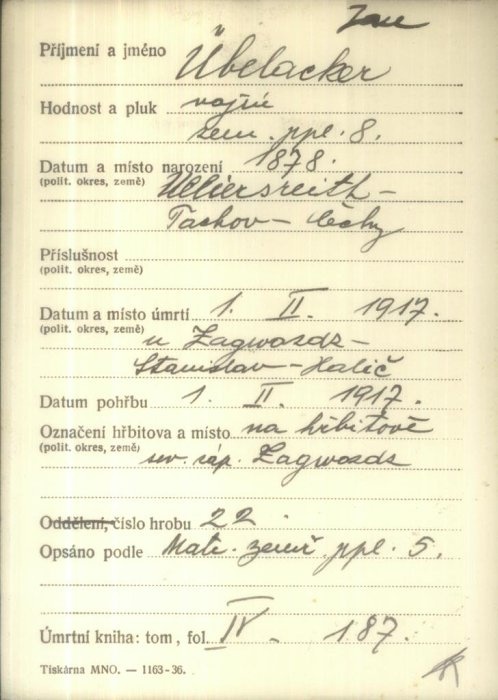 Jan
Příjmení a jméno Übelacker
Hodnost a pluk vojín
zem. ppl. 8.
Datum a místo narození 1878.
(polit. okres, země) Ulliersreith -
Tachov - Čechy
Příslušnost
(polit. okres, země)
Datum a místo úmrtí 1. II. 1917.
(polit. okres, země) u Zagwosdz -
Stanislav - Halič
Datum pohřbu 1. II. 1917.
Označení hřbitova a místo na hřbitově
(polit. okres, země) sev. záp. Zagwosdz
Oddělení, číslo hrobu 22.
Opsáno podle Matr. zemř. ppl. 5.
Úmrtní kniha: tom, fol. IV. 187.
Tiskárna MNO. — 1163-36.